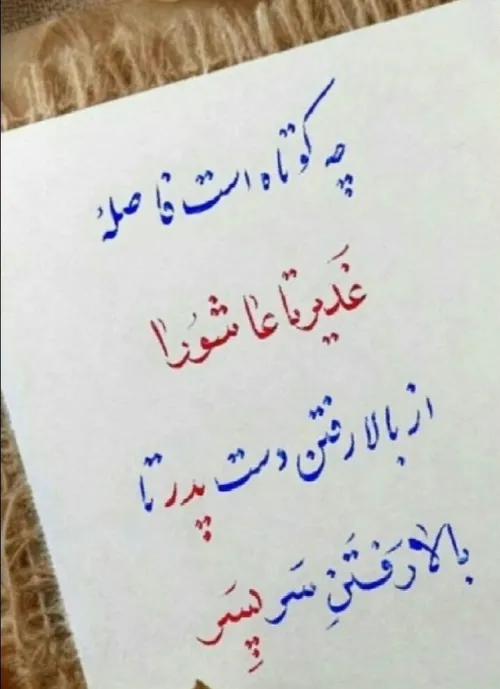 چه کوتاه است فاصلهٔ
غَدیر تا عاشورا
از بالا رفتن دست پدر تا
بالا رَفتَنِ سَر پِسَر